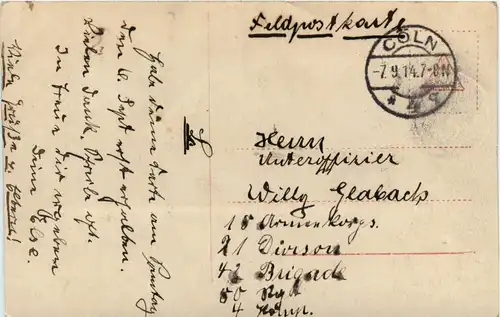 Feldpostkarte
CÖLN
-7.9.14.7-8N
Herrn
Unteroffizier
Willy Glabach
18 Armeekorps.
21 Division
42 Brigade
80 Rgt
4 Komp.
Habe deine Karte am Sonntag
den 6 Sept erst erhalten.
Vielen Dank.
In Treue dein
Deine Else.
Viele Grüße u.